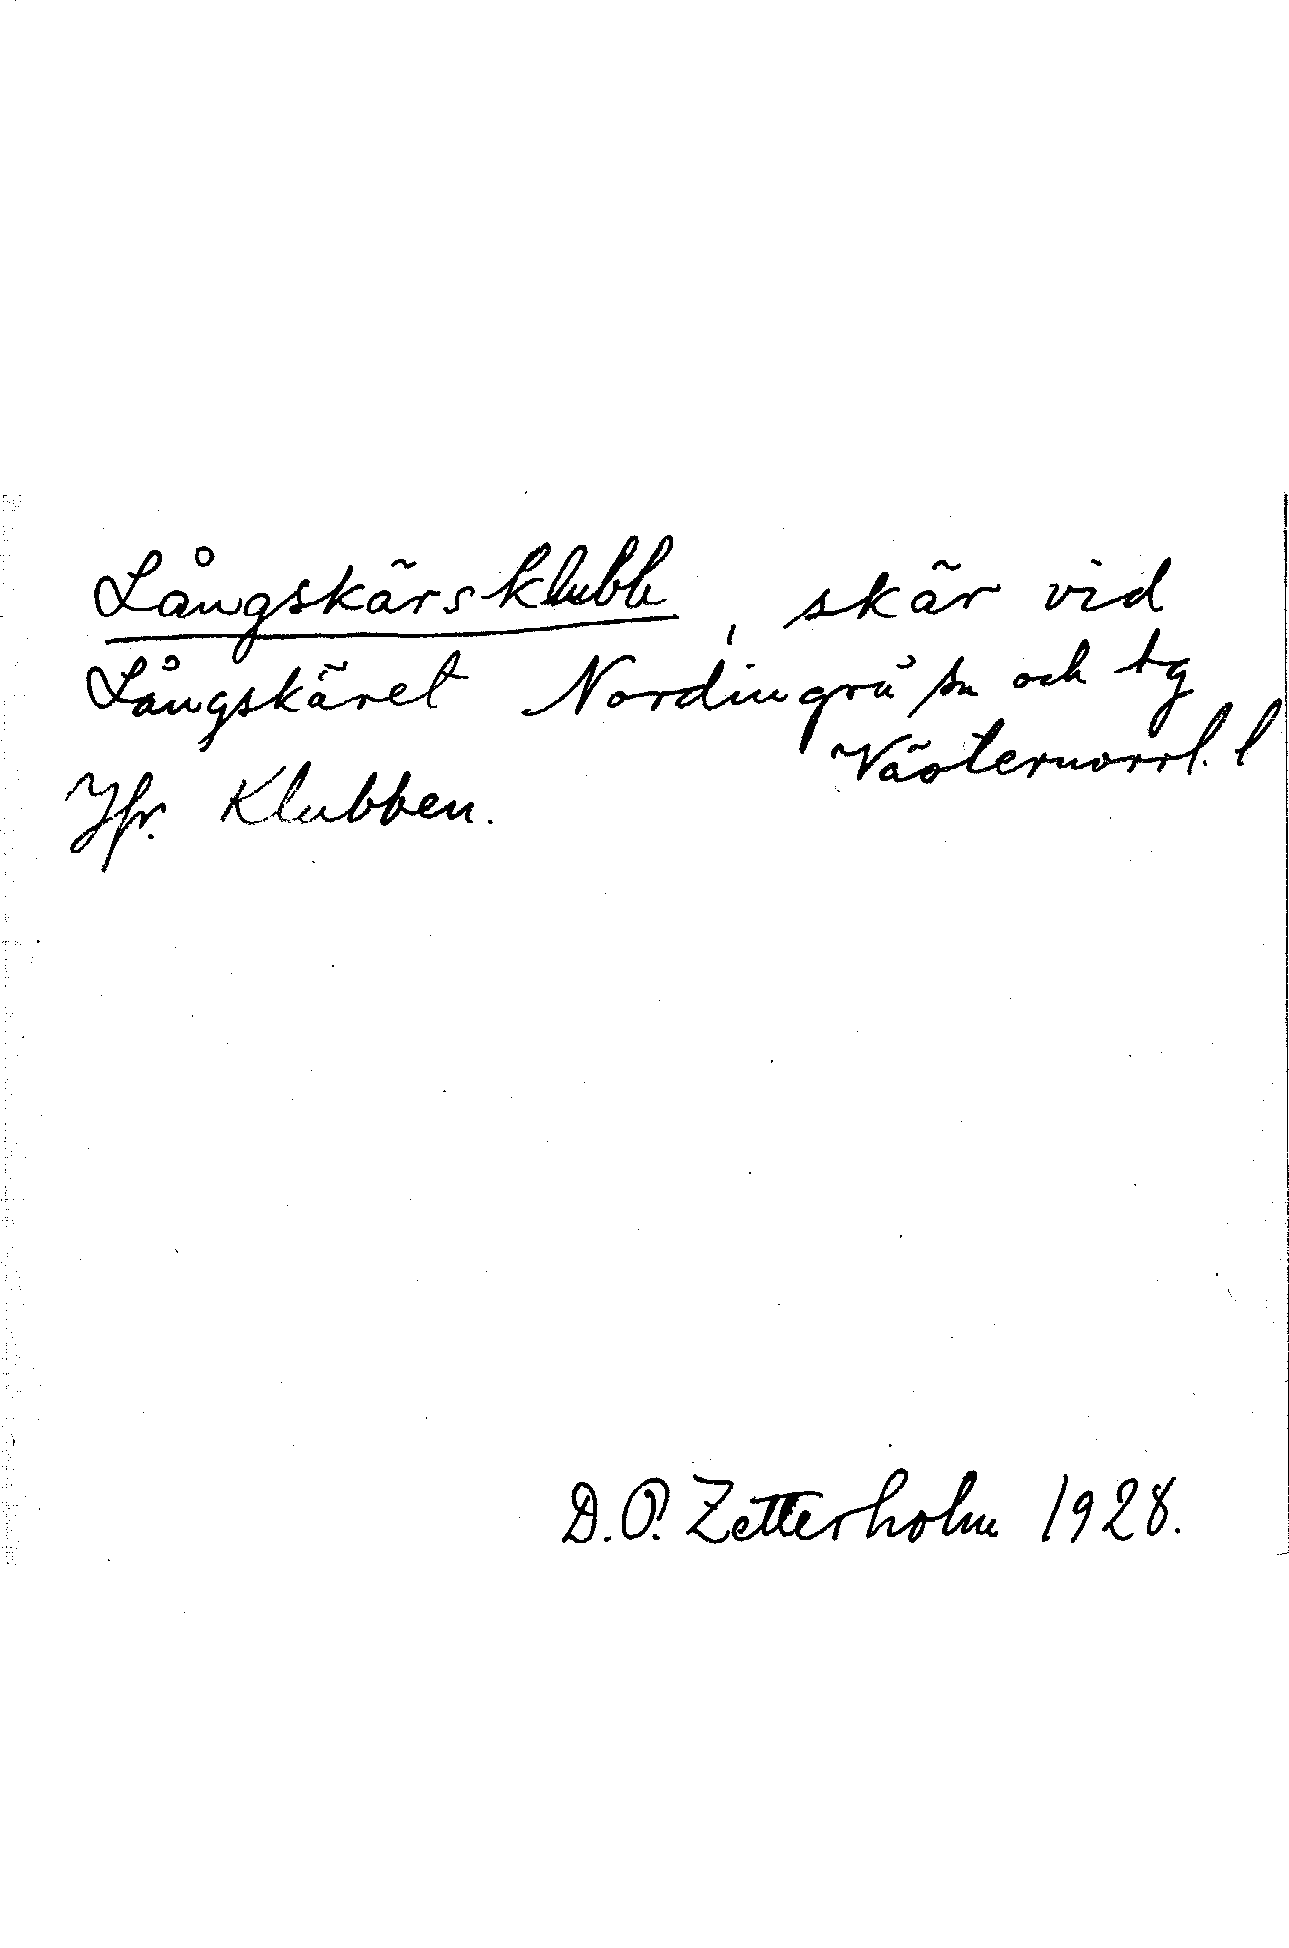 Långskärsklubb, skär vid
Långskäret Nordingrå sn och tg
Västernorrl. l
Jfr. Klubben.
D.O.P. Zetterholm 1928.